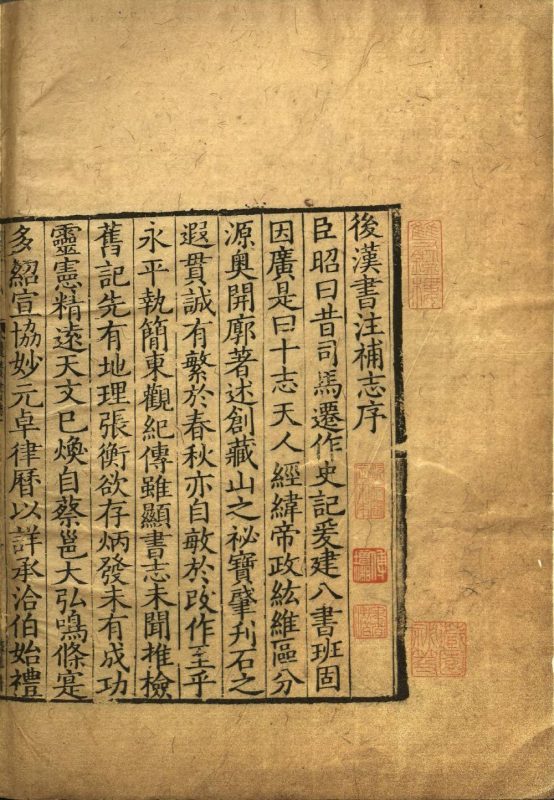 後漢書注補志序
臣昭曰昔司馬遷作史記爰建八書班固
因廣是曰十志天人經緯帝政紘維區分
源奧開廓著述創藏山之祕寶肇刊石之
遐貫誠有繁於春秋亦自敏於改作至乎
永平執簡東觀紀傳雖顯書志未聞推檢
舊記先有地理張衡欲存炳發未有成功
靈憲精遠天文已煥自蔡邕大弘鳴條寔
多紹宣協妙元卓律曆以詳承洽伯始禮
雙鑑樓